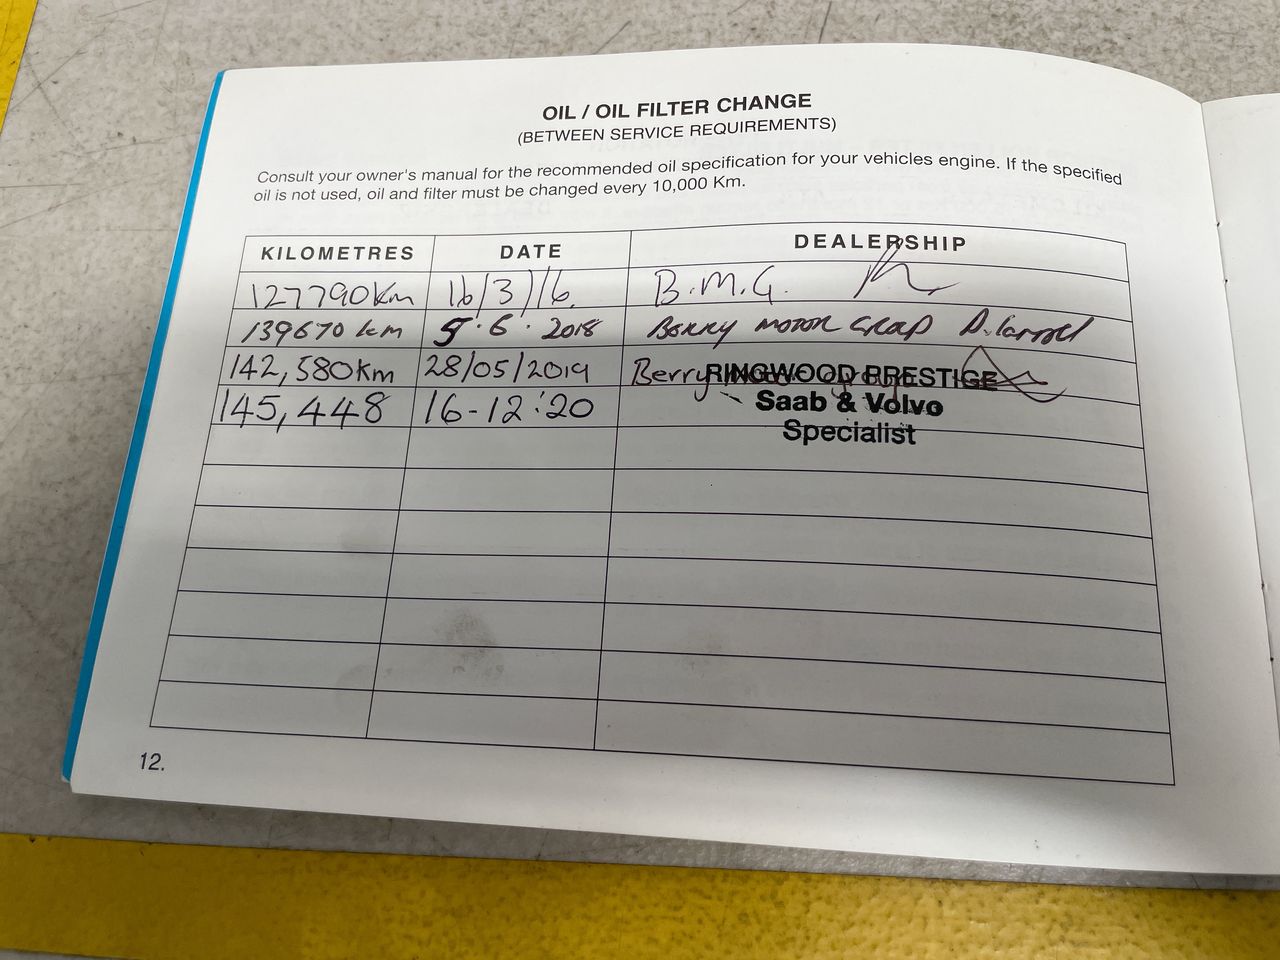 OIL / OIL FILTER CHANGE
(BETWEEN SERVICE REQUIREMENTS)
Consult your owner's manual for the recommended oil specification for your vehicles engine. If the specified
oil is not used, oil and filter must be changed every 10,000 Km.
KILOMETRES DATE DEALERSHIP
127790km 16/3/16. B.M.G.
139670 km 5.6.2018 BERRY MOTOR GROUP
142,580km 28/05/2019 Berry
RINGWOOD PRESTIGE
145,448 16-12:'20 Saab & Volvo
Specialist
12.